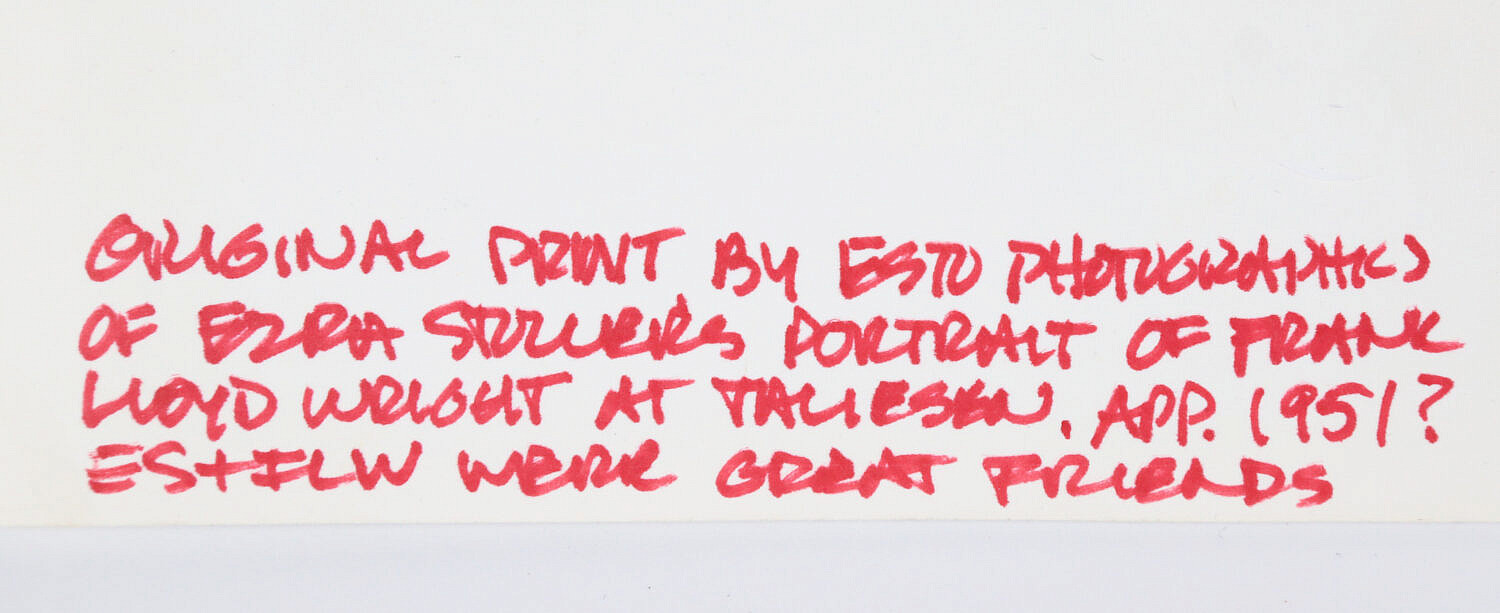 ORIGINAL PRINT BY ESTO PHOTOGRAPHICS
OF EZRA STOLLER'S PORTRAIT OF FRANK
LLOYD WRIGHT AT TALIESEN. APP. 1951?
ES+FLW WERE GREAT FRIENDS